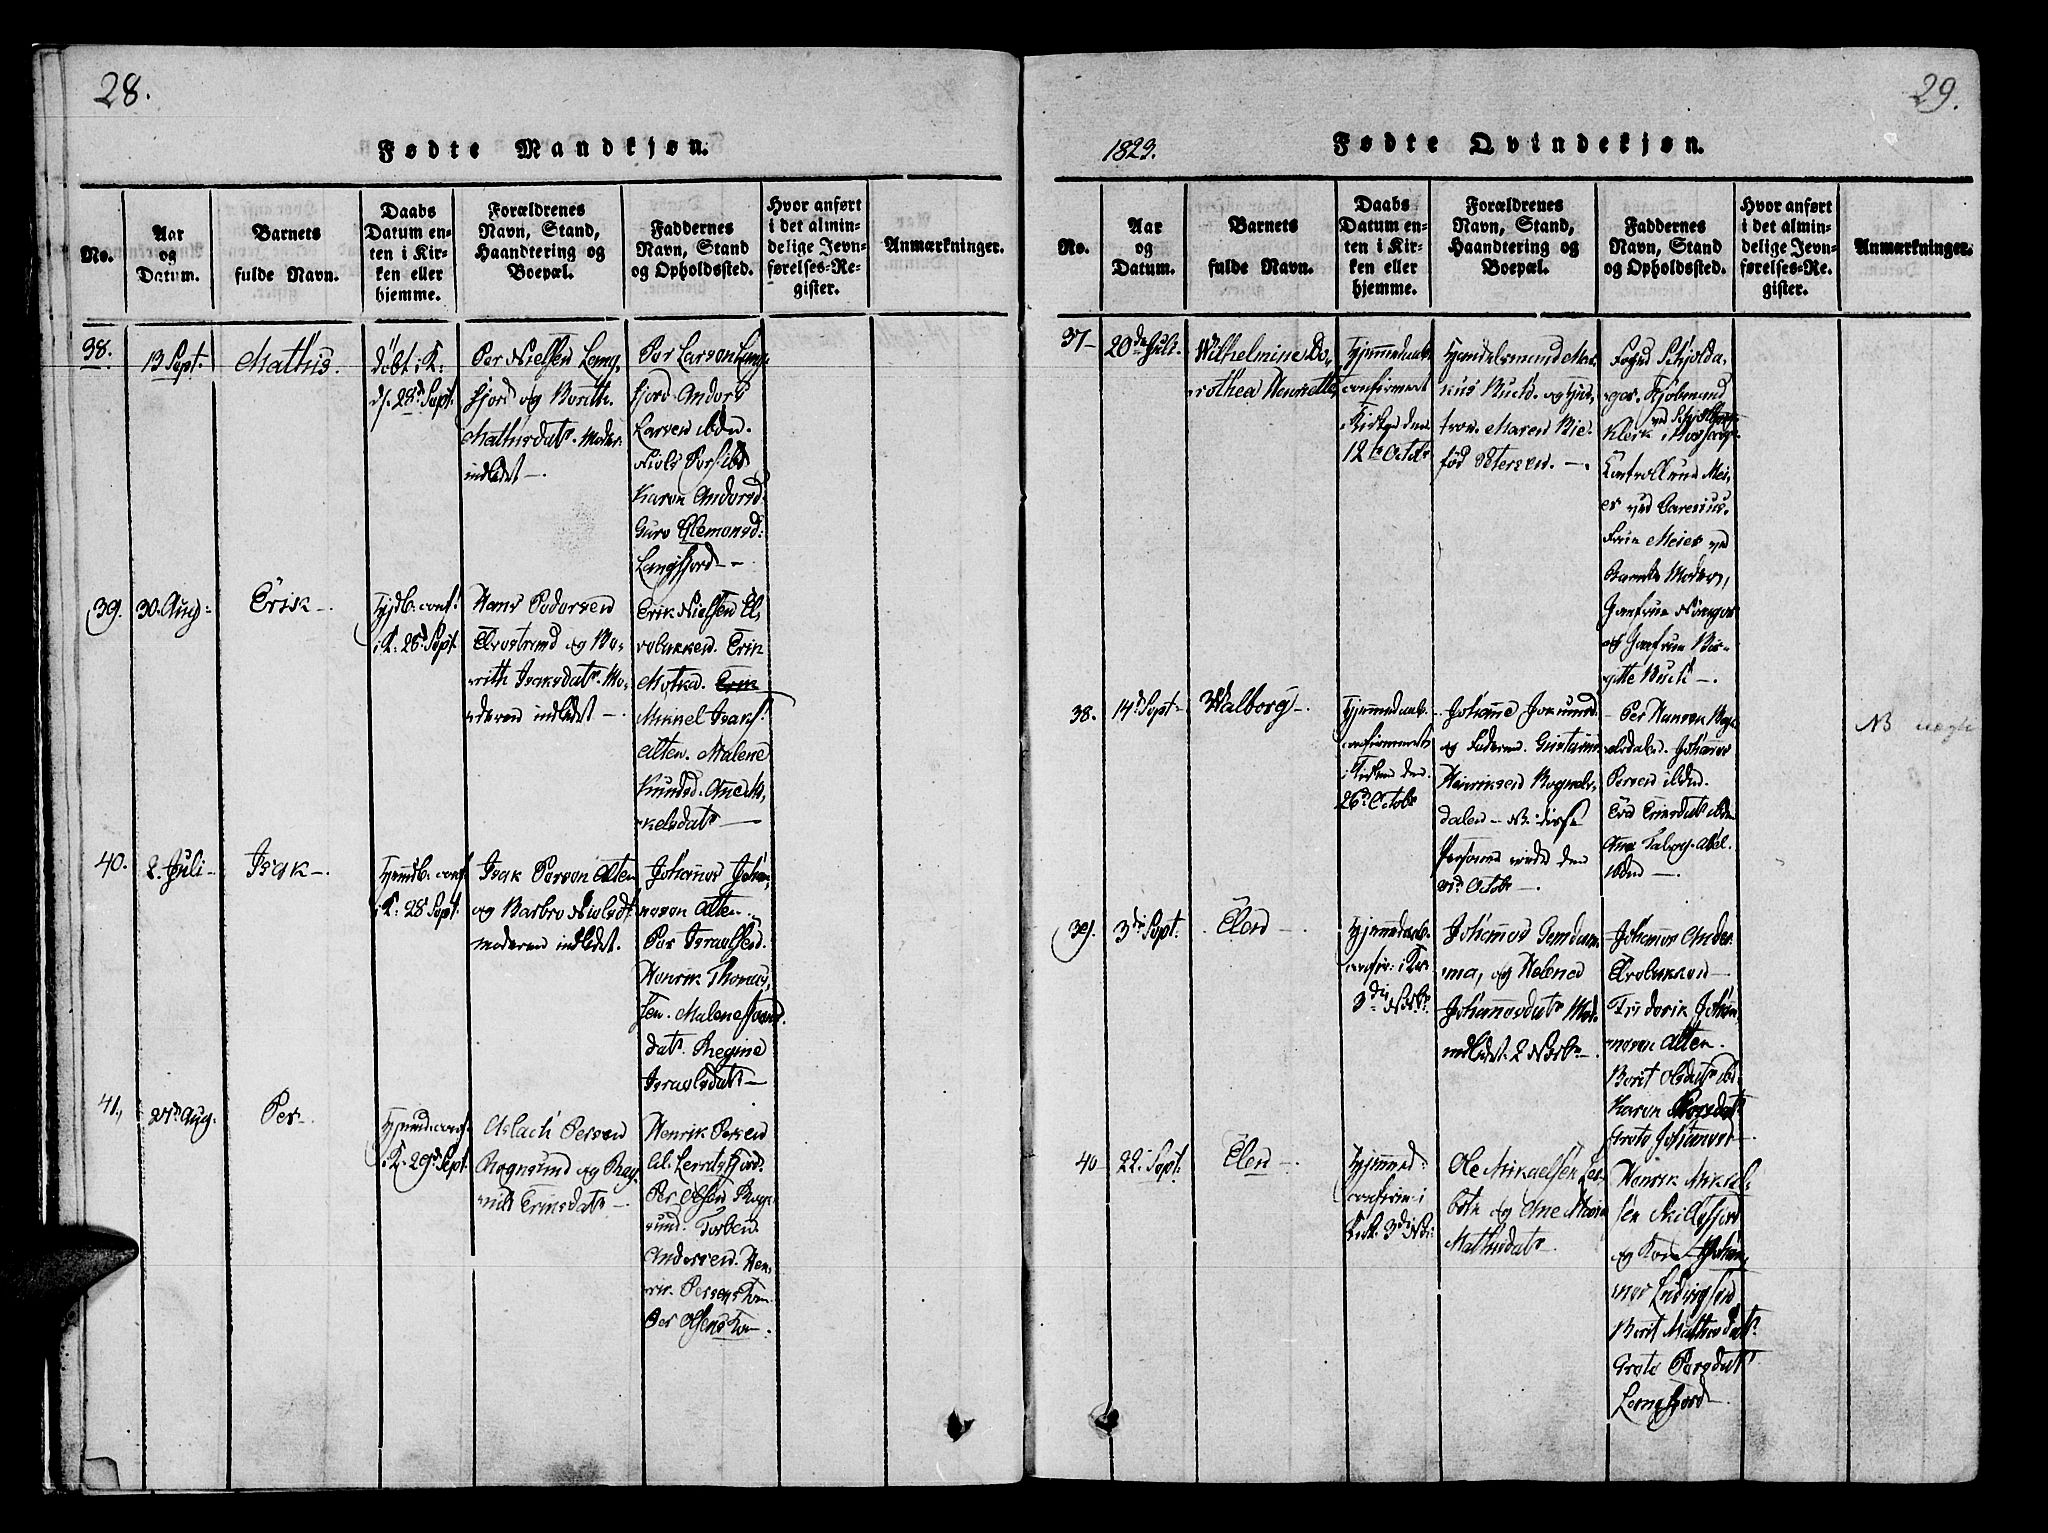 28.
Fødte Mandkjøn.
No.
Aar
og
Datum.
Barnets
fulde Navn.
Daabs
Datum en-
ten i Kir-
ken eller
hjemme.
Forældrenes
Navn, Stand,
Haandtering og
Boepæl.
Faddernes
Navn, Stand
og Opholdssted.
Hvor anført
i det almin-
delige Jevn-
førelses-Re-
gister.
Anmærkninger.
38.
13 Sept.
Mathis.
døbt i K:
d. 28d Sept.
Per Nielsen Lang-
fjord og Berith
Mathisdatr. Moder
indledet —.
Per Larsen Lang-
fjord Anders
Larsen ibdn.
Niels Pers. ibd
Karen Andersd:
Guro Clemensd:
Langfjord —
39.
30. Aug:
Erik —.
Hjdb. conf.
i K: 28d Sept.
Hans Pedersen
Elvestrand og Be-
rith Isaksdatr. Mo-
deren indledet —.
Erik Nielsen El-
vebakken. Erik
Motka. Erik
Mikkel Isaks.
Alten. Malene
Knudsd. Ane Mi-
kelsdatr —
40.
2 Juli —
Isak —.
Hjemdb. conf.
i K: 28 Sept.
Isak Persen Alten
og Barbro Nielsdt.
moderen indledet.
Johannes Johan-
nesen Alten.
Per Israelsen.
Henrik Thomas-
sen. Malene
datr. Regine
Israelsdatr —
41.
27d Aug.
Per —.
Hjemd. conf.
i K. 29d Sept.
Aslach Persen
Rognsund og Rag-
nild Eriksdatr —
Henrik Persen
Per Olsen Rogn-
sund. Torben
Andersen. Hen-
rik Persens Kone
Per Olsens Kone.
29.
1823.
Fødte Qvindekjøn.
No.
Aar
og
Datum.
Barnets
fulde Navn.
Daabs
Datum en-
ten i Kir-
ken eller
hjemme.
Forældrenes
Navn, Stand,
Haandtering og
Boepæl.
Faddernes
Navn, Stand
og Opholdssted.
Hvor anført
i det almin-
delige Jevn-
førelses-Re-
gister.
Anmærkninger.
37 —
20de Juli.
Wilhelmine Do-
rothea Henriette
Hjemmedøbt
confirmert
i Kirken den
12te Octobr
Handelsmand Mar-
kus Buck og Hus-
troe Maren Bie
fød Petersen. —.
Foged
Kjøbmand
Klerk i
Kontrolleur Mei-
er ved
Frue Meier ved
Barnets Moder,
Jomfrue
og Jomfrue Bir-
gitte Buck —.
38.
14d Sept —
Walborg —.
Hjemmedøbt
confirmert
i Kirken den
26d Octobr
Johanne
og Faderen Gustav
Henriksen Bognels-
dalen — NB. disse
Personer viede den
Octobr —.
Per Hansen Bog-
nelsdalen. Johannes
Persen ibdn.
Eva Eriksdatr ibdn
Ane
ibdn —.
NB
39.
3di Sept.
Elen —.
Hjemmedøb.
confir: i Kir
3di Novbr.
Johannes
og Helena
Johannesdatr Mod.
indledet 2 Novbr —.
Johannes Anders.
Elvebakken —
Friderik Johan-
nesen Alten.
Berit Olsdatr ibd.
Karen Persdatr
Grete Johannesd —
40
22. Sept.
Elen —.
Hjemmed:
confirm: i
Kir. 3di
Ole Mikkelsen
og Ane Marie
Mathisdatr.
Henrik Mikkel-
sen Skillefjord
og Kone Johan-
nes Ludvigsen
Berit Mathisdatr.
Grete Persdatr
Langfjord —